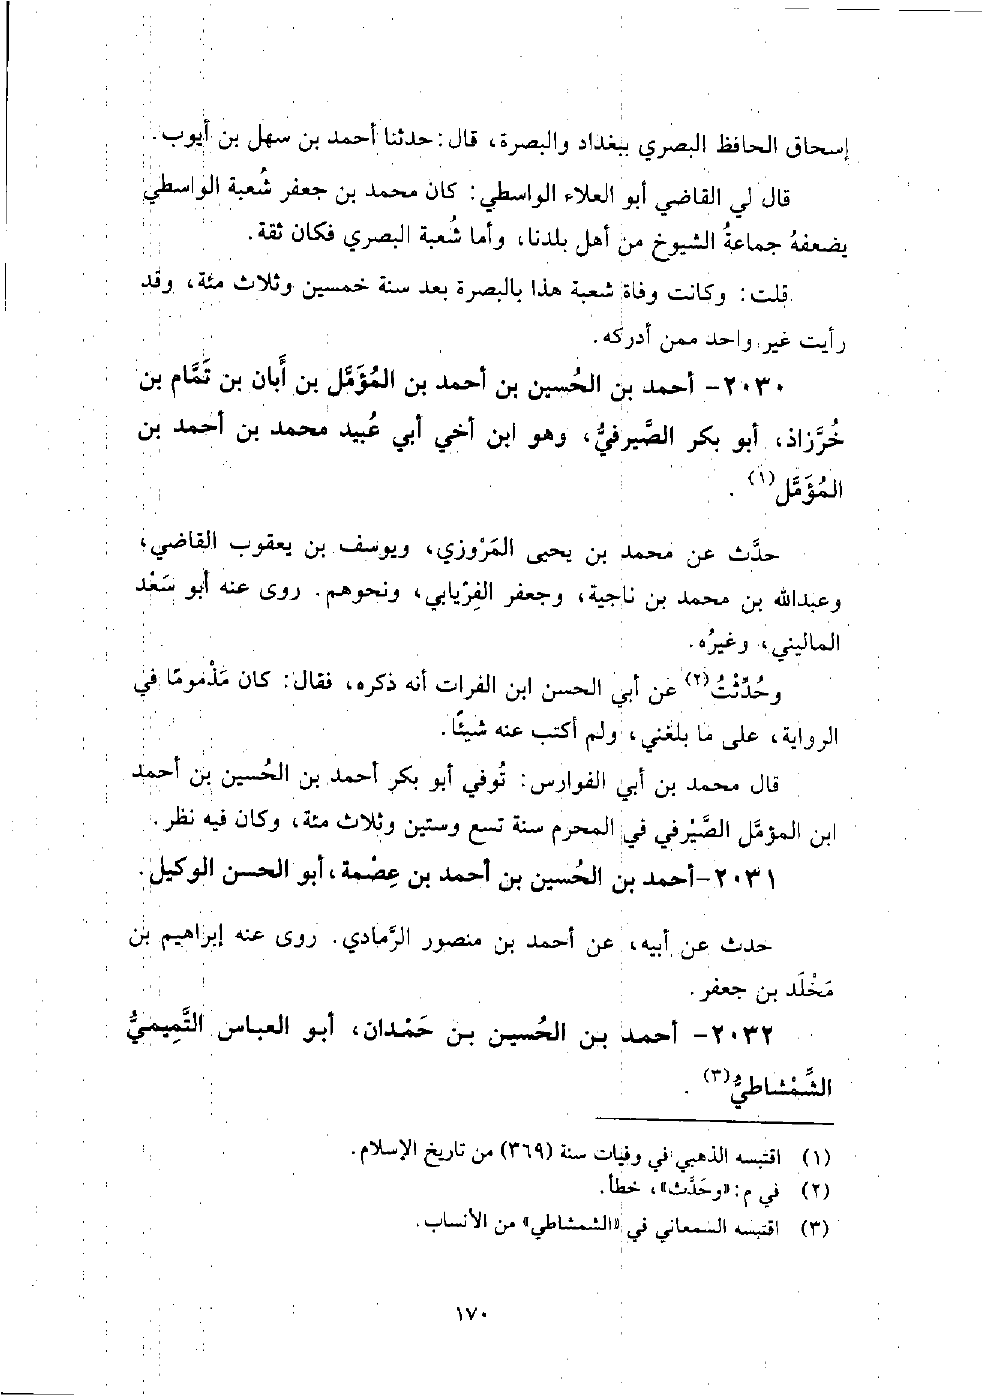 إسحاق الحافظ البصري ببغداد والبصرة، قال: حدثنا أحمد بن سهل بن أيوب.
قال لي القاضي أبو العلاء الواسطي: كان محمد بن جعفر شُعبة الواسطي
يضعفهُ جماعةُ الشيوخ من أهل بلدنا، وأما شُعبة البصري فكان ثقة.
قلت: وكانت وفاة شعبة هذا بالبصرة بعد سنة خمسين وثلاث مئة، وقد
رأيت غير واحد ممن أدركه.
٢٠٣٠- أحمد بن الحُسين بن أحمد بن المُؤَمَّل بن أَبان بن تَمَّام بن
خُرَّزاذ، أبو بكر الصَّيرفيُّ، وهو ابن أخي أبي عُبيد محمد بن أحمد بن
المُؤَمَّل(١).
حدَّث عن محمد بن يحيى المَرْوزي، ويوسف بن يعقوب القاضي،
وعبدالله بن محمد بن ناجية، وجعفر الفِرْيابي، ونحوهم. روى عنه أبو سَعْد
الماليني، وغيرُه.
وحُدِّثْتُ(٢) عن أبي الحسن ابن الفرات أنه ذكره، فقال: كان مَذْمومًا في
الرواية، على ما بلغني، ولم أكتب عنه شيئًا.
قال محمد بن أبي الفوارس: تُوفي أبو بكر أحمد بن الحُسين بن أحمد
ابن المؤمَّل الصَّيْرفي في المحرم سنة تسع وستين وثلاث مئة، وكان فيه نظر.
٢٠٣١- أحمد بن الحُسين بن أحمد بن عِصْمة، أبو الحسن الوكيل.
حدث عن أبيه، عن أحمد بن منصور الرَّمادي. روى عنه إبراهيم بن
مَخْلَد بن جعفر.
٢٠٣٢- أحمد بن الحُسين بن حَمْدان، أبو العباس التَّمِيميُّ
الشَّمْشاطيُّ(٣).
(١) اقتبسه الذهبي في وفيات سنة (٣٦٩) من تاريخ الإسلام.
(٢) في م: «وحَدَّث»، خطأ.
(٣) اقتبسه السمعاني في «الشمشاطي» من الأنساب.
١٧٠